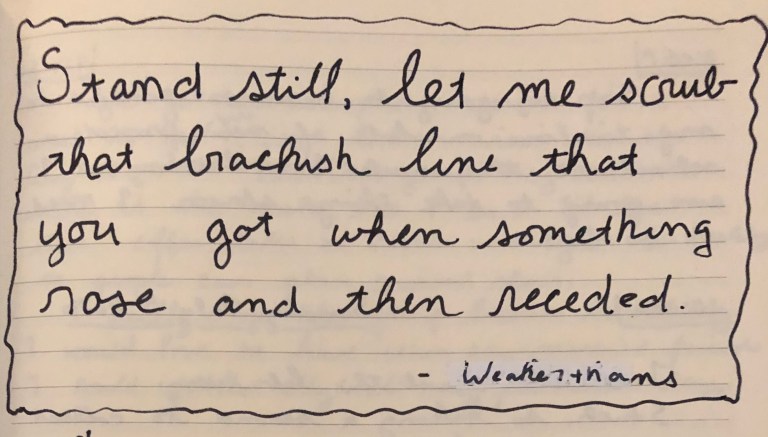 Stand still, let me scrub
that brackish line that
you got when something
rose and then receded.
- Weakerthans